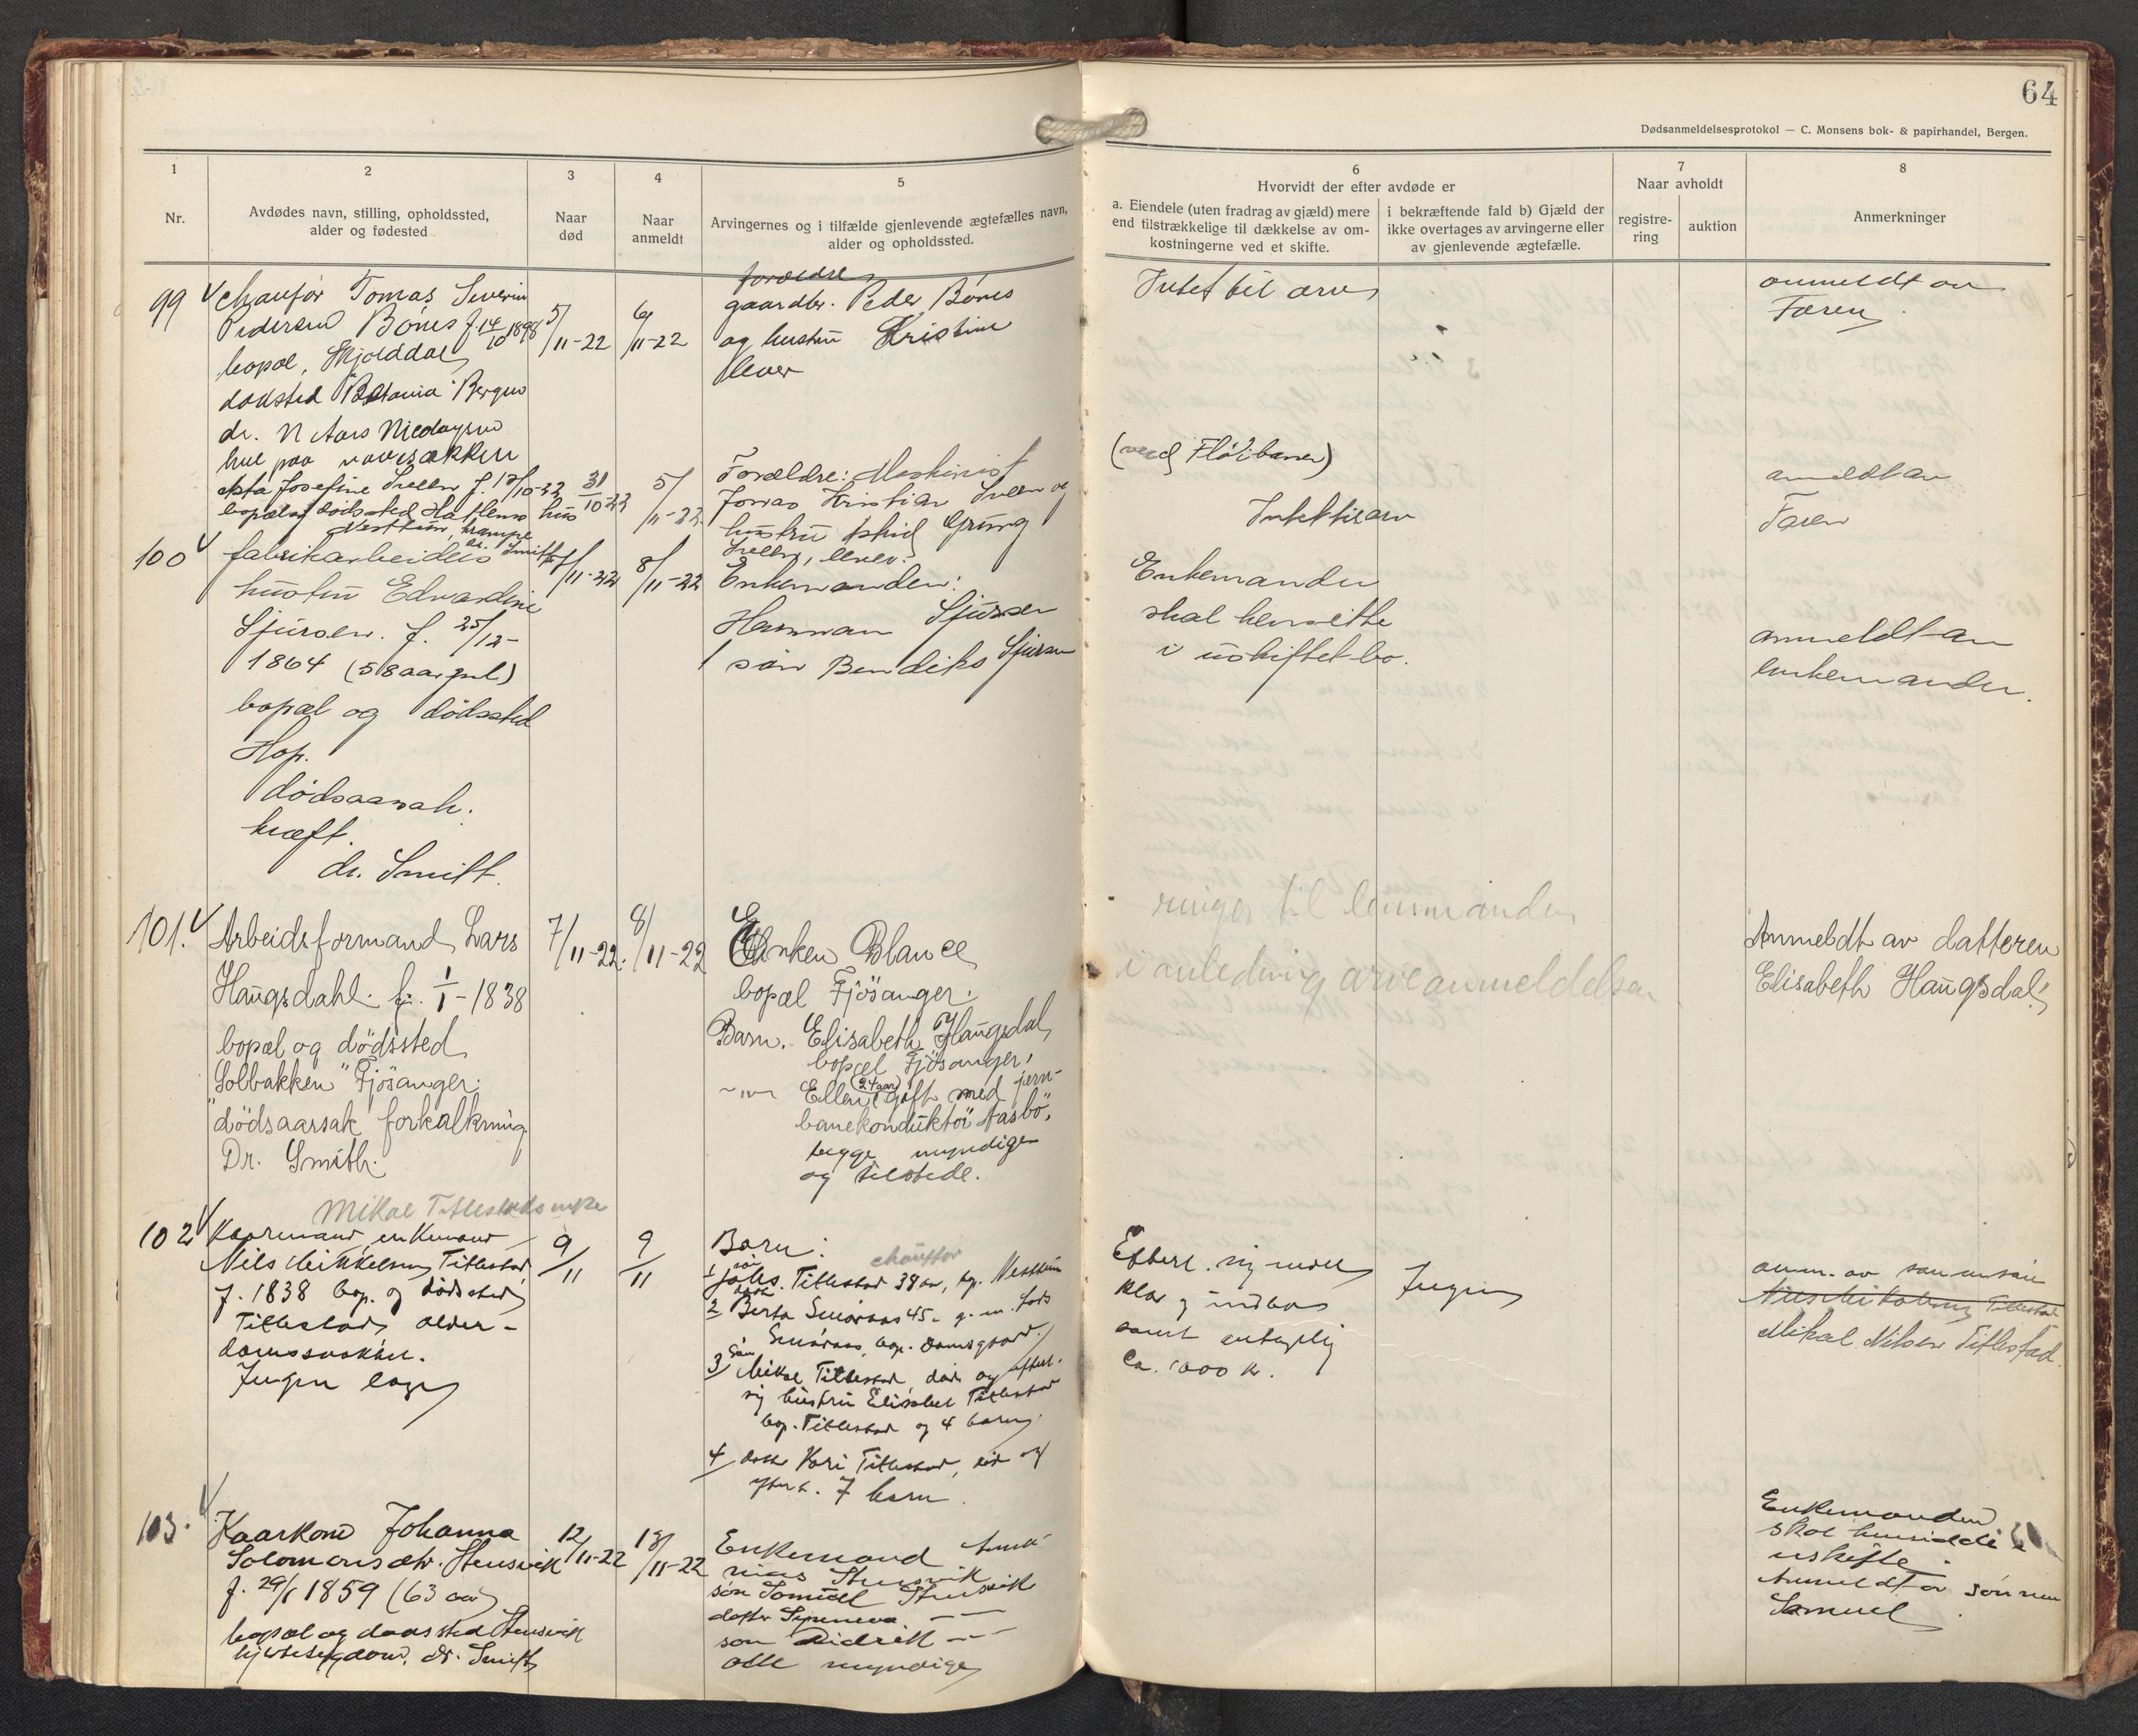 64
Dødsanmeldelsesprotokol — C. Monsens bok- & papirhandel, Bergen.
1
Nr.
2
Avdødes navn, stilling, opholdssted,
alder og fødested
3
Naar
død
4
Naar
anmeldt
5
Arvingernes og i tilfælde gjenlevende ægtefælles navn,
alder og opholdssted.
6
Hvorvidt der efter avdøde er
a. Eiendele (uten fradrag av gjæld) mere
end tilstrækkelige til dækkelse av om-
kostningerne ved et skifte.
i bekræftende fald b) Gjæld der
ikke overtages av arvingerne eller
av gjenlevende ægtefælle.
7
Naar avholdt
registre-
ring
auktion
8
Anmerkninger
99
Chauför Tomas Severin
Pedersen Bönes f. 14/10 1898
bopæl, Skjolddal
dödsted "Betania" Bergen
dr. N Aars Nicolaysen
hul paa
5/11-22
6/11-22
forældre
gaardbr. Peder Bönes
og hustru Kristine
lever
Intet til arv
anmeldt av
Faren
Josefine
bopæl og dödssted
Nesttun, krampe
31/10 22
5/11-22
Forældre: Maskinist
Jonas Kristian
hustru Grung
lever.
(ved Flöibanen)
Intet til arv
anmeldt av
Faren
100
fabrikarbeider
hustru Edvardine
Sjursen. f. 25/12-
1864 (58 aar gml)
bopæl og dödssted
Hop.
dödsaarsak.
kræft.
dr. Smitt.
7/11-22
8/11-22
Enkemanden:
Herman Sjursen
1 sön Bendiks Sjursen
Enkemanden
skal hensitte
i uskiftet bo.
anmeldt av
enkemanden.
101.
Arbeidsformand Lars
Haugsdahl. f. 1/1-1838
bopæl og dödssted
"Solbakken" Fjösanger.
dödsaarsak forkalkning.
Dr. Smith.
7/11-22.
8/11-22
Enken Blance
bopæl Fjösanger.
Barn. Elisabeth Haugsdal,
bopæl Fjösanger,
Ellen (24 aar) gift med jern-
banekonduktör Aasbö,
begge myndige
og tilstede.
ringer til lensmanden
i anledning arveanmeldelsen
Anmeldt av datteren
Elisabeth Haugsdal.
Mikal Titlestads enke
102
Kaarmand, enkemand
Nils Mikkelsen Titlestad
f. 1838 bop. og dödssted
Titlestad, alder-
domssvakhet.
Ingen læge
9/11
9/11
Barn:
chauffør
1 sön Johs. Titlestad 38 aar, bp. Nesttun
2 datt. Berta Smöraas 45 - g. m. Lars
Smöraas, bop. Damsgaard.
3) sön Mikal Titlestad, död og efterl.
sig hustru Elisabet Titlestad
bop. Titlestad og 4 barn,
4 datt. Kari Titlestad, död og
efterl. 7 barn.
Efterl. sig noget
klær og indbo
samt antagelig
Ca. 1000 kr.
Ingen
anm. av
Mikal Nilsen Titlestad.
103.
Kaarkone Johanna
Salomonsdtr. Stensvik
f. 29/1 1859 (63 aar)
bopæl og dödssted Stensvik
hjertesygdom. dr. Smith
12/11-22
13/11-22
Enkemand
Stensvik
sön Samuel Stensvik
datter
sön Didrik
alle myndige
Enkemanden
skal hensidde i
uskifte.
Anmeldt av sönnen
Samuel